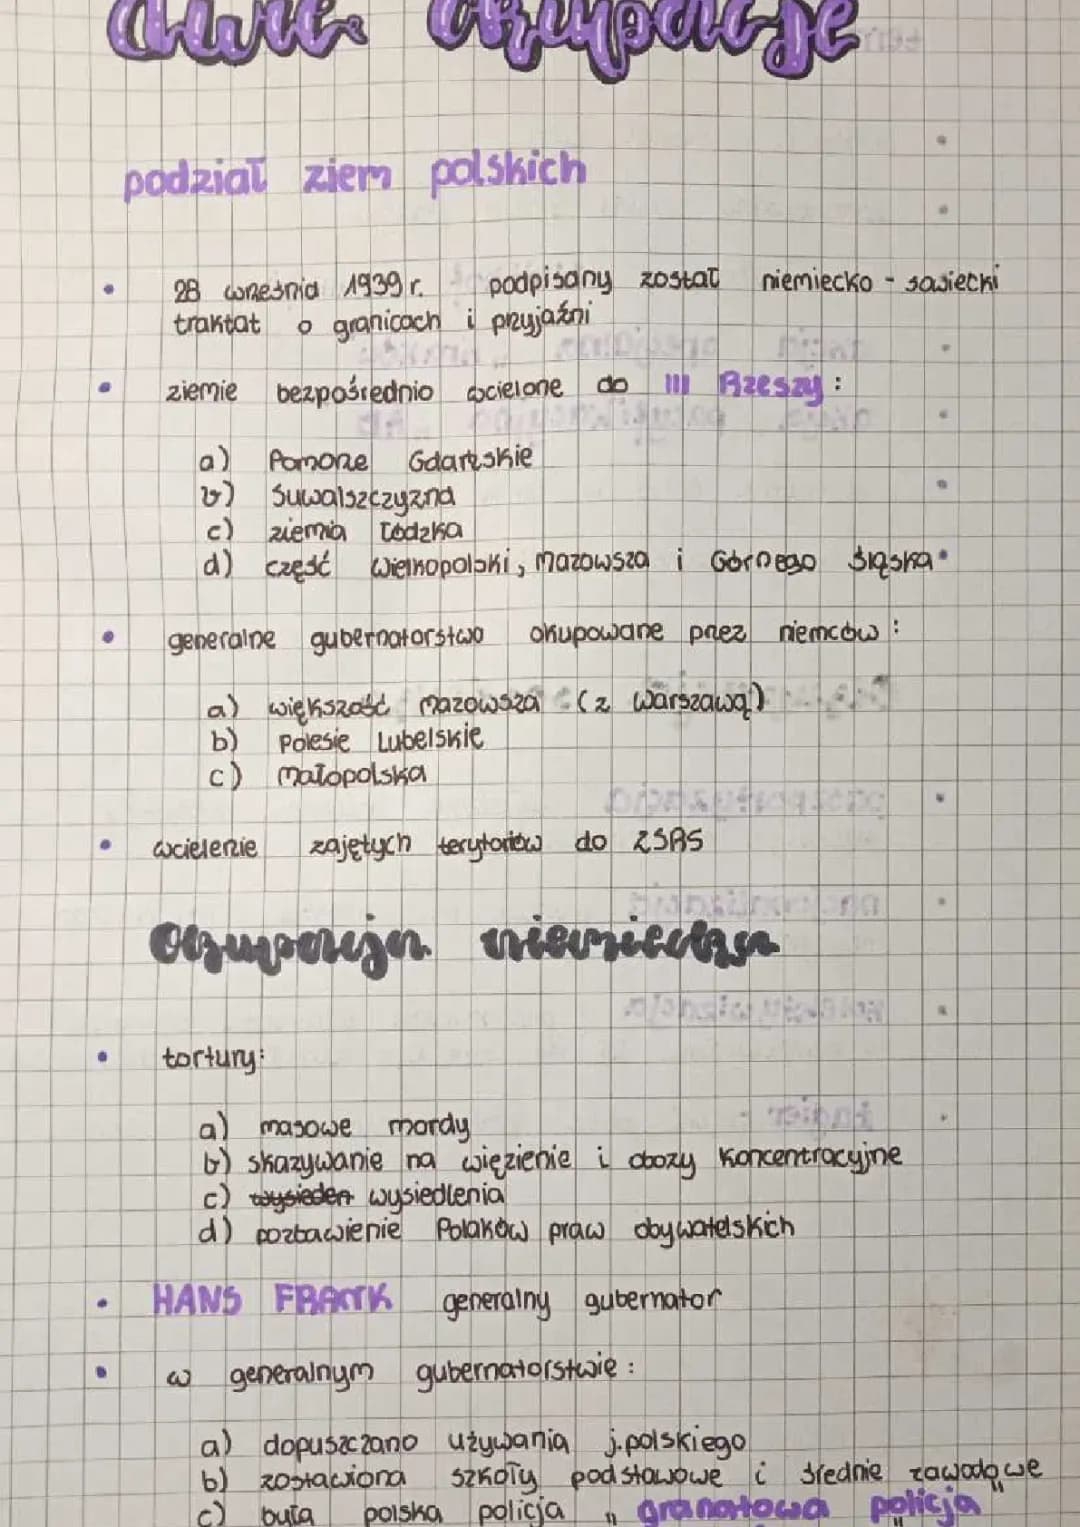 dwie okupacje
podział ziem polskich
• 28 września 1939 r. podpisany został niemiecko - sowiecki
traktat o granicach i przyjaźni
• ziemie bezpośrednio wcielone do III Rzeszy :
a) Pomorze Gdańskie
b) Suwalszczyzna
c) ziemia łódzka
d) część Wielkopolski, Mazowsza i Górnego Śląska
• generalne gubernatorstwo okupowane przez niemców :
a) większość Mazowsza (z Warszawą)
b) Polesie Lubelskie
c) Małopolska
• wcielenie zajętych terytoriów do ZSRS
okupacja niemiecka
• tortury:
a) masowe mordy
b) skazywanie na więzienie i obozy koncentracyjne
c) wysiedlen wysiedlenia
d) pozbawienie Polaków praw obywatelskich
• HANS FRANK generalny gubernator
• w generalnym gubernatorstwie :
a) dopuszczano używania j.polskiego
b) zostawiona szkoły podstawowe i średnie zawodowe
c) była polska policja „granatowa policja"